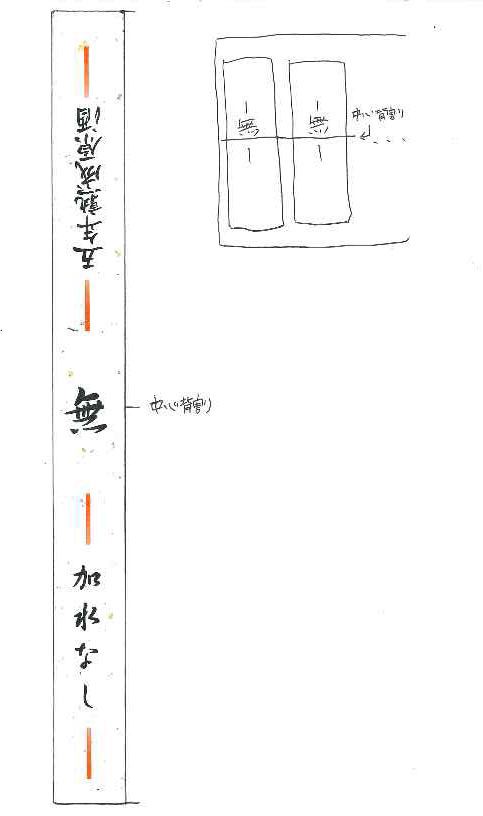 五年熟成原酒
無
加水なし
中心背割り
無
無
中心背割り